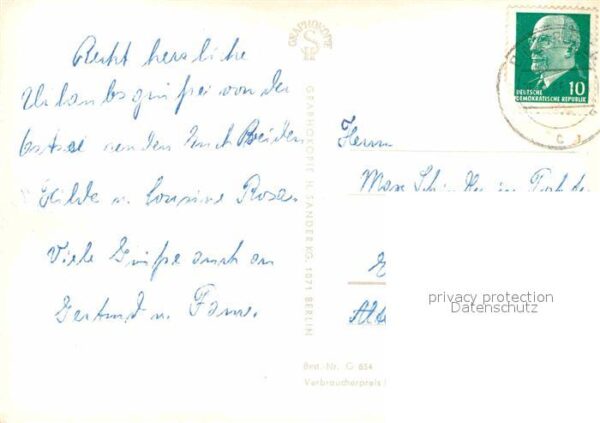 Recht herzliche
Urlaubsgrüße von der
Ostsee senden Euch Beiden
Hilde u. Cousine
Viele Grüße auch an
Gertrud u. Fam.
GRAPHOKOPIE
GRAPHOKOPIE H. SANDER KG, 1071 BERLIN
Best. Nr. G 854
Verbraucherpreis
DEUTSCHE
DEMOKRATISCHE REPUBLIK
10
Herrn
Max
privacy protection
Datenschutz